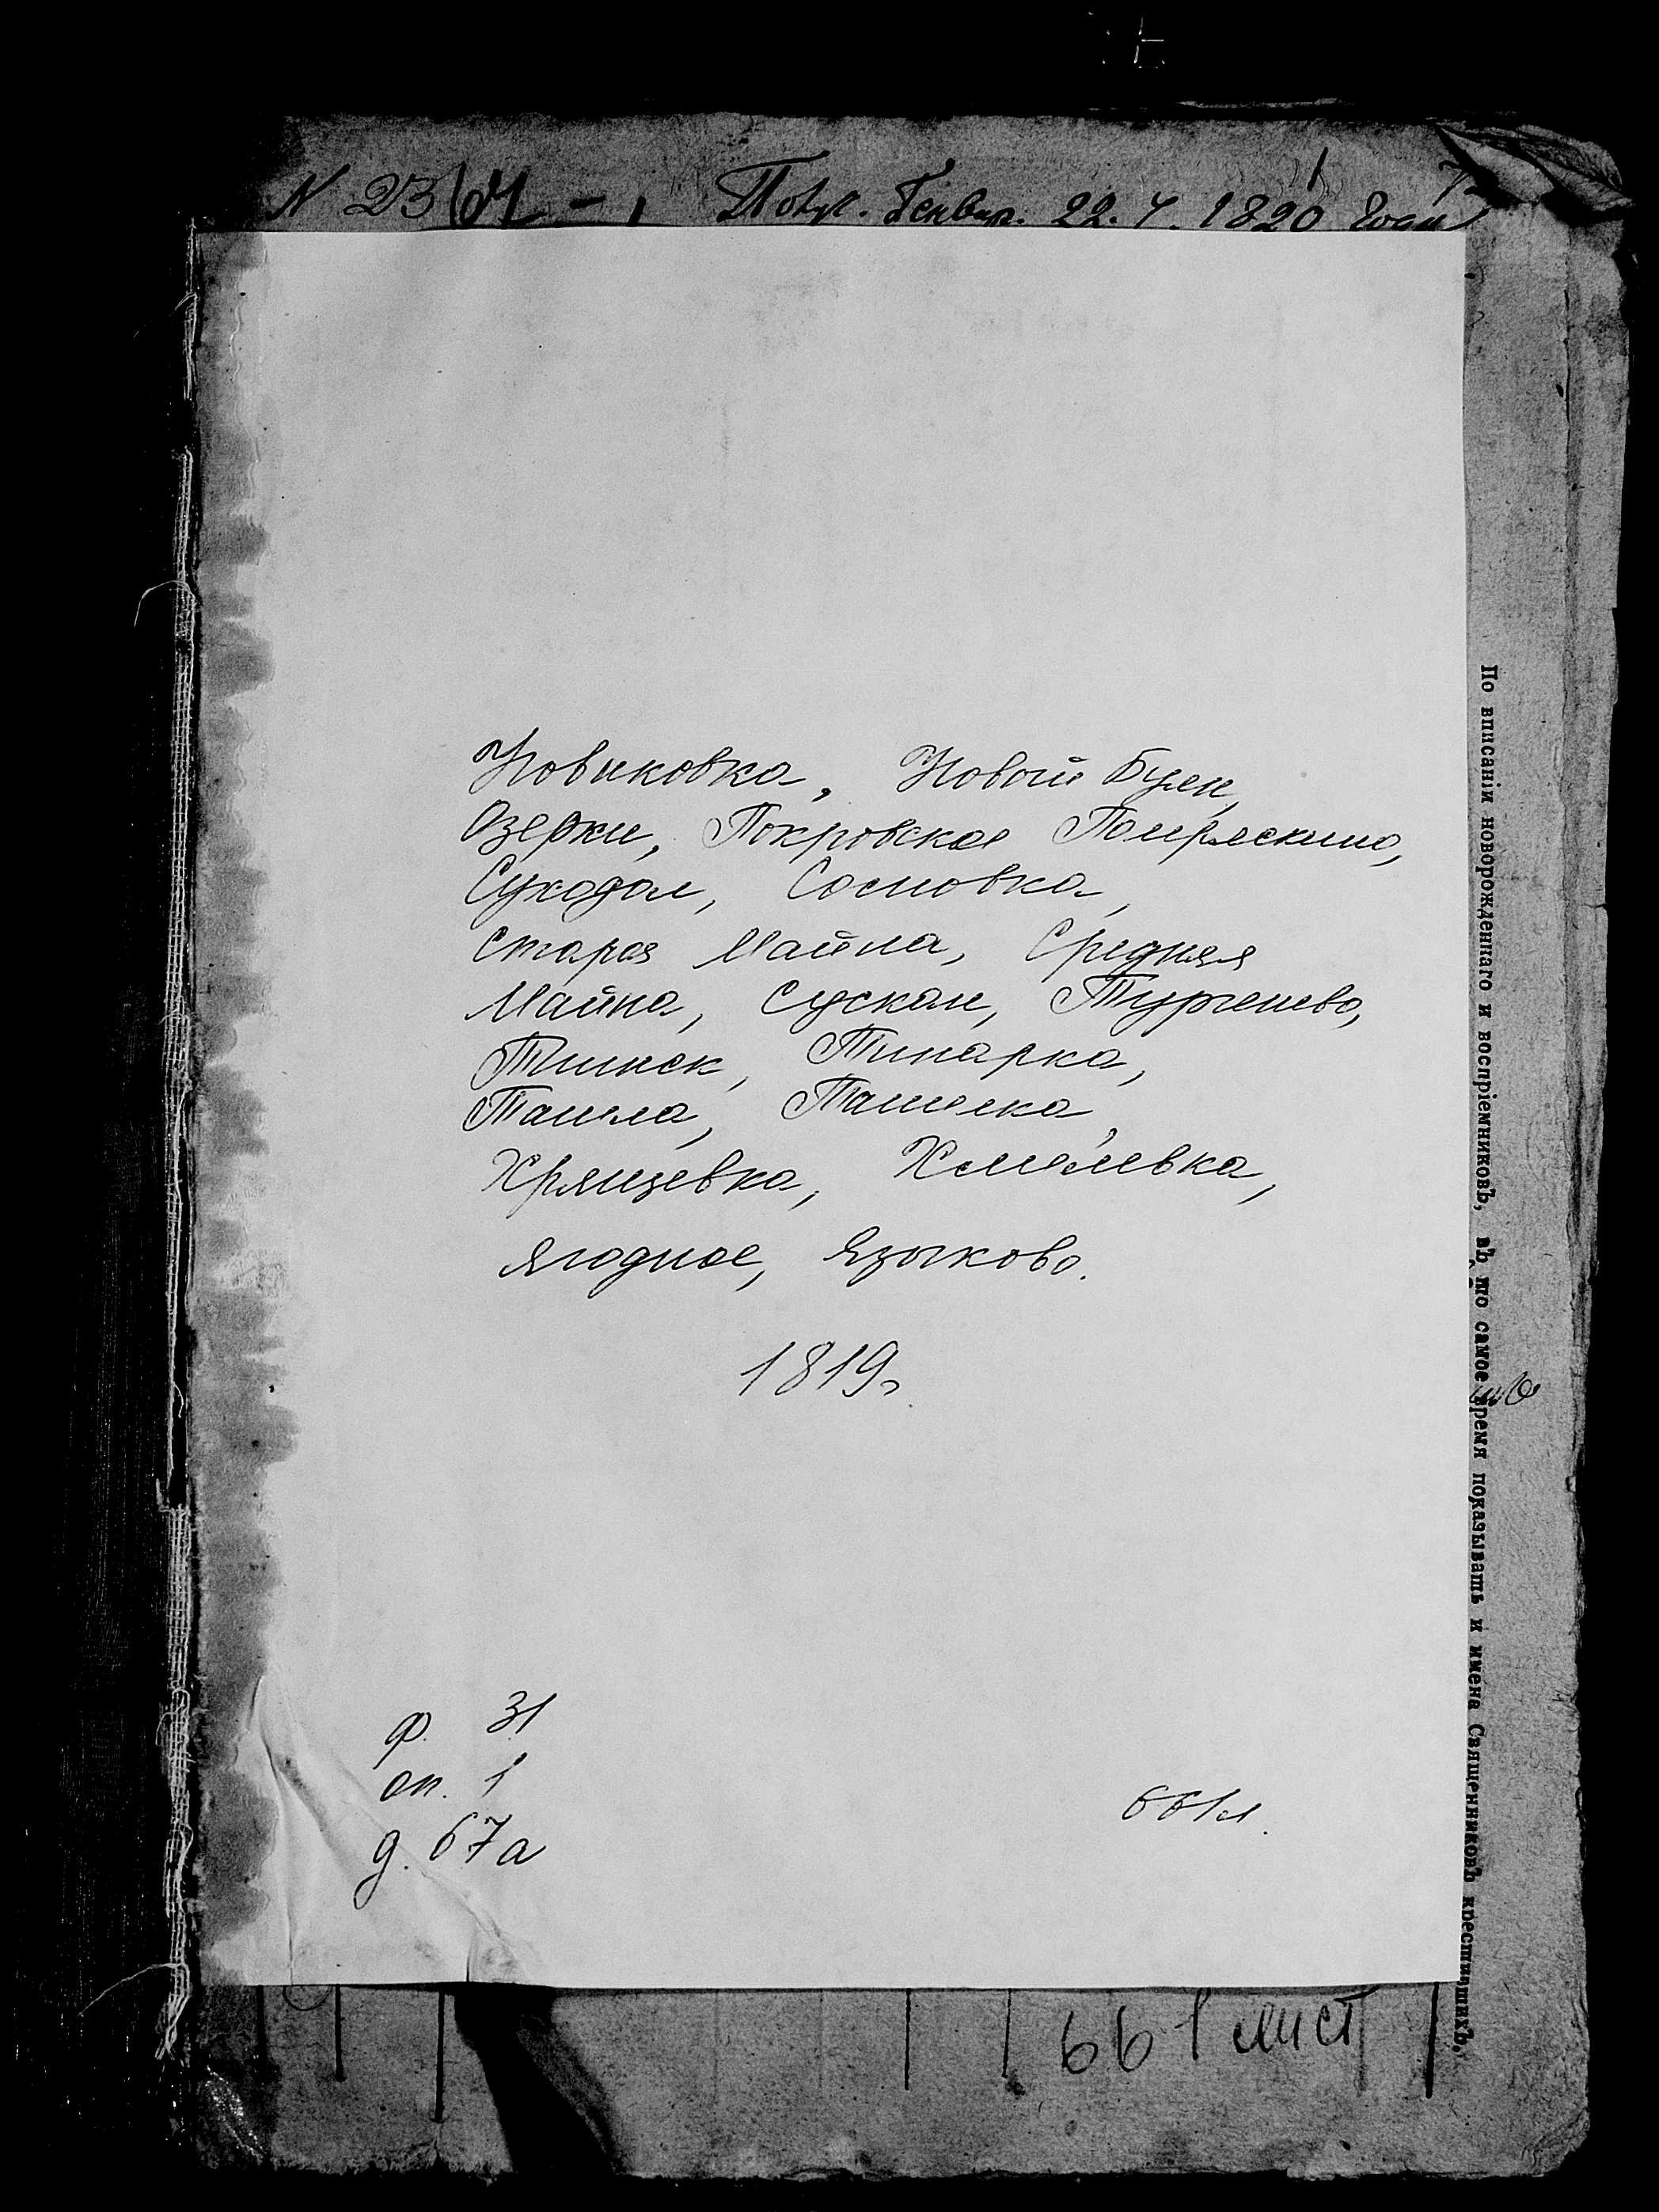 N 23
Генвар. 22. ч. 1820 года
Новиковка, Новый Буян,
Озерки, Покровское Помряскино,
Суходол, Сосновка,
Старая Майна, Средняя
Майна, Сускан, Тургенево,
Тиинск, Тинарка,
Ташла, Ташелка,
Хрящевка, Хмелевка,
Ягодное, Языково.
1819г.
ф. 31
оп. 1
д. 67а
661л.
661 лист
По вписаніи новорожденнаго и воспріемниковъ, въ то самое время показывать и имена Священниковъ крестившихъ,